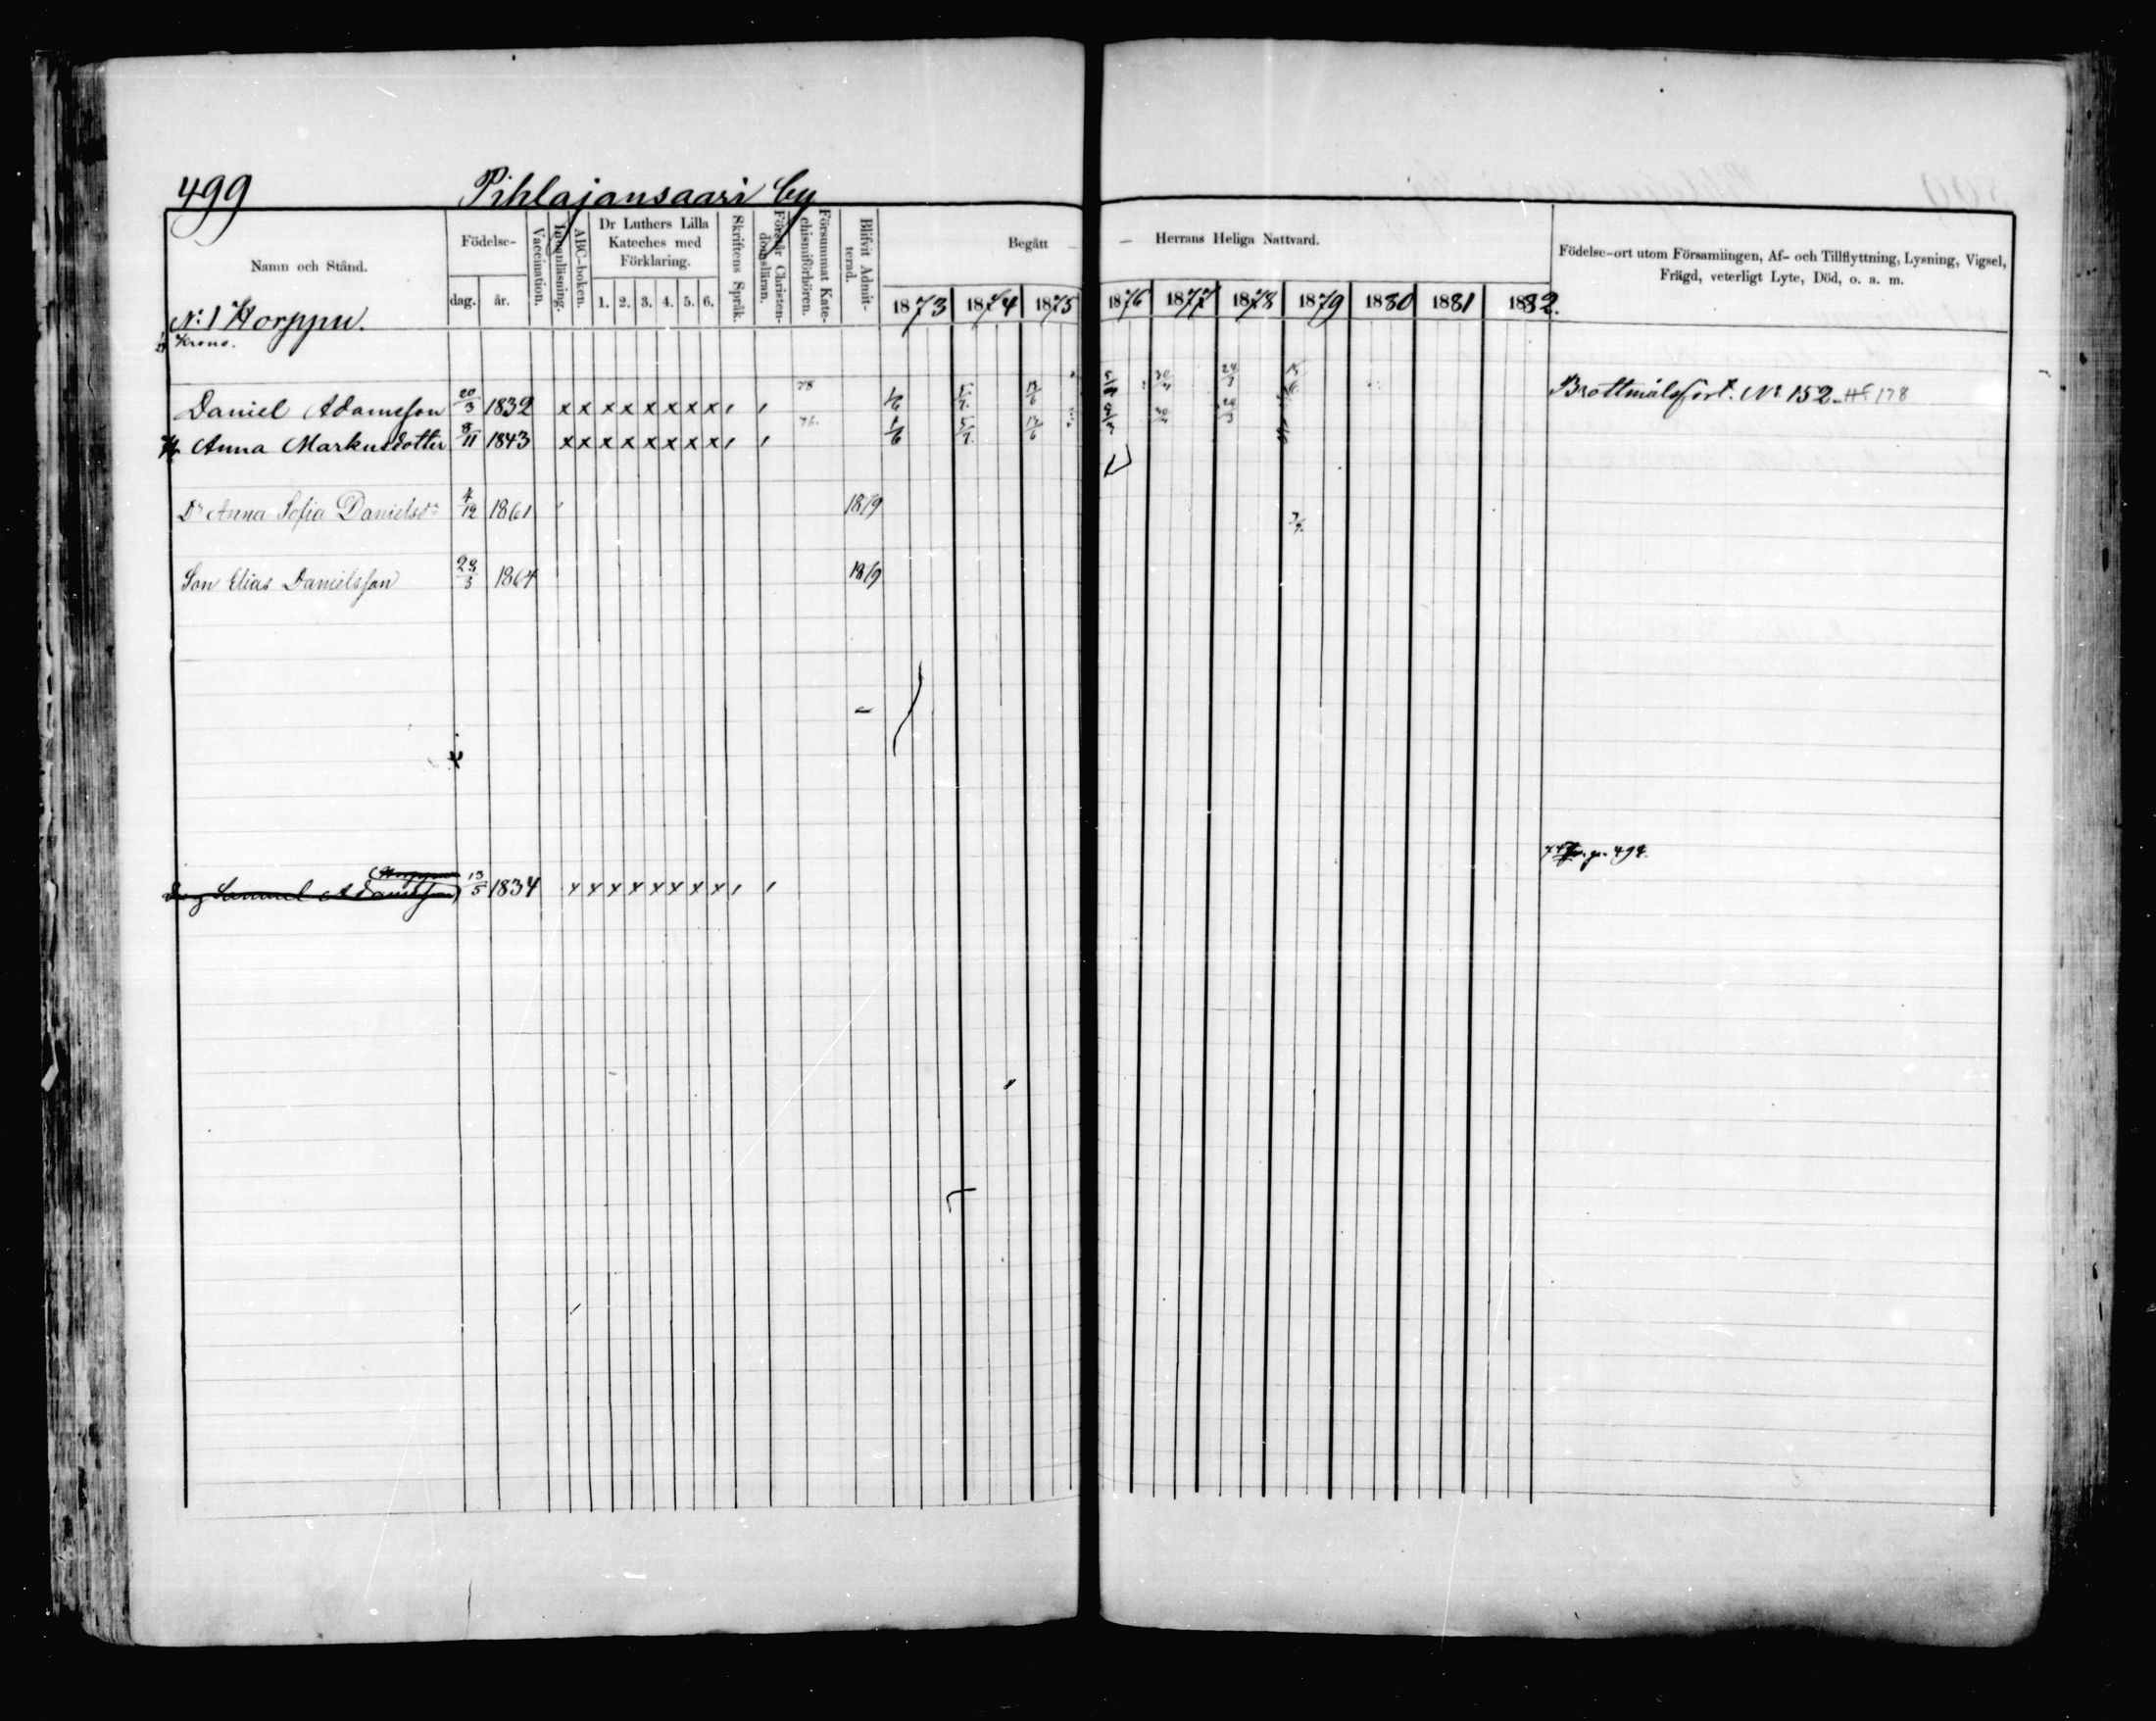 499 Pihlajansaari by
Namn och Stånd.
Födelse-
dag. år.
Vaccination.
Innanläsning.
ABC-boken.
Dr Luthers Lilla
Kateches med
Förklaring.
1. 2. 3. 4. 5. 6.
Skriftens Språk.
Förstår Christen-
domsläran.
Försummat Kate-
chismiförhören.
Blifvit Admit-
terad.
Begått — — Herrans Heliga Nattvard.
1873 1874 1875 1876 1877 1878 1879 1880 1881 1882.
Födelse-ort utom Församlingen, Af- och Tillflyttning, Lysning, Vigsel,
Frägd, veterligt Lyte, Död, o. a. m.
No: 1 Horppu.
Krono.
Daniel Adamsson 20/3 1832 x x x x x x x x 78 1/6 5/7 13/6 30/4 24/3 Brottmålsfört. No 152. 178
Anna Markusdotter 8/11 1843 x x x x x x x x 76. 1/6 5/7 13/6 30/4 24/3
Dr Anna Sofia Danielsdr 4/12 1861 1879
Son Elias Danielsson 29/3 1864 1879
p. 494.
Samuel Adamsson 13/5 1834 x x x x x x x x